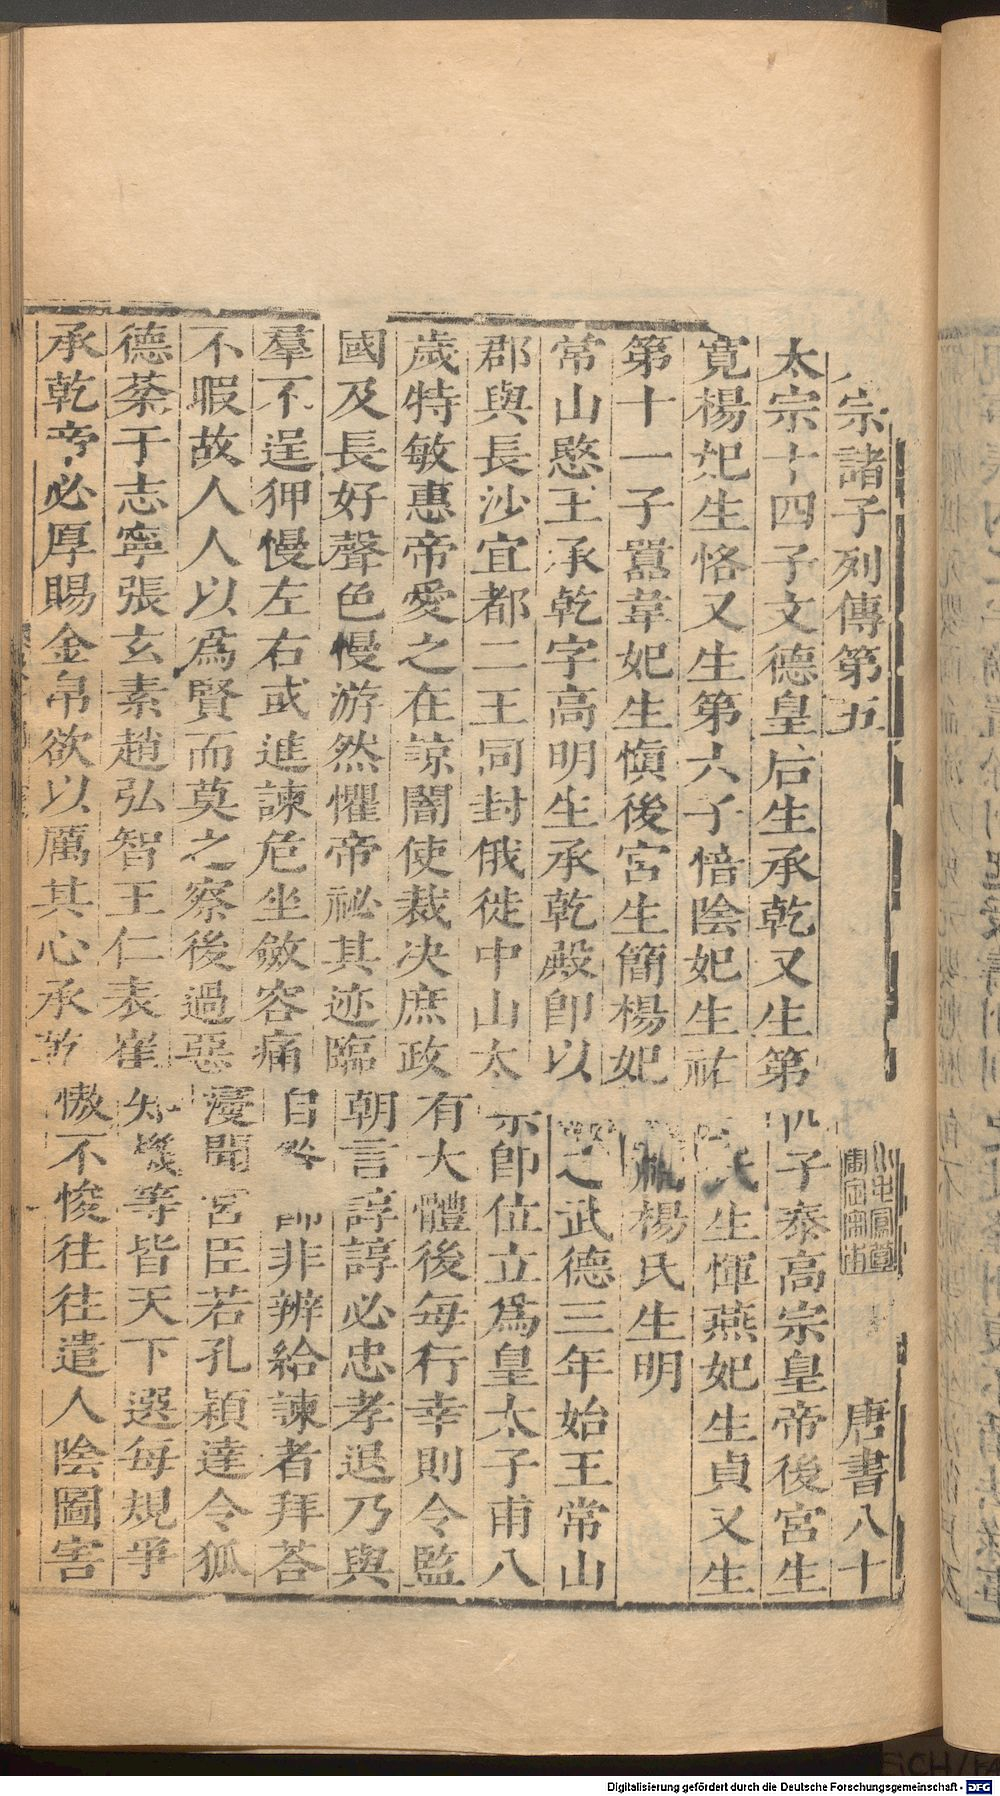 宗諸子列傳第五 唐書八十
太宗十四子文德皇后生承乾又生第四子泰高宗皇帝後宮生
寛楊妃生恪又生第六子愔陰妃生祐 氏生惲燕妃生貞又生
第十一子囂韋妃生愼後宮生簡楊妃 福楊氏生明
常山愍王承乾字高明生承乾殿卽以 之武德三年始王常山
郡與長沙宜都二王同封俄徙中山太宗卽位立爲皇太子甫八
歲特敏惠帝愛之在諒闇使裁決庶政有大體後每行幸則令監
國及長好聲色慢游然懼帝祕其迹臨朝言諄諄必忠孝退乃與
羣不逞狎慢左右或進諫危坐斂容痛自 飾非辨給諫者拜荅
不暇故人人以爲賢而莫之察後過惡寖聞宮臣若孔穎達令狐
德棻于志寧張玄素趙弘智王仁表崔知機等皆天下選每規爭
承乾帝必厚賜金帛欲以厲其心承乾慠不悛往往遣人陰圖害
Digitalisierung gefördert durch die Deutsche Forschungsgemeinschaft - DFG